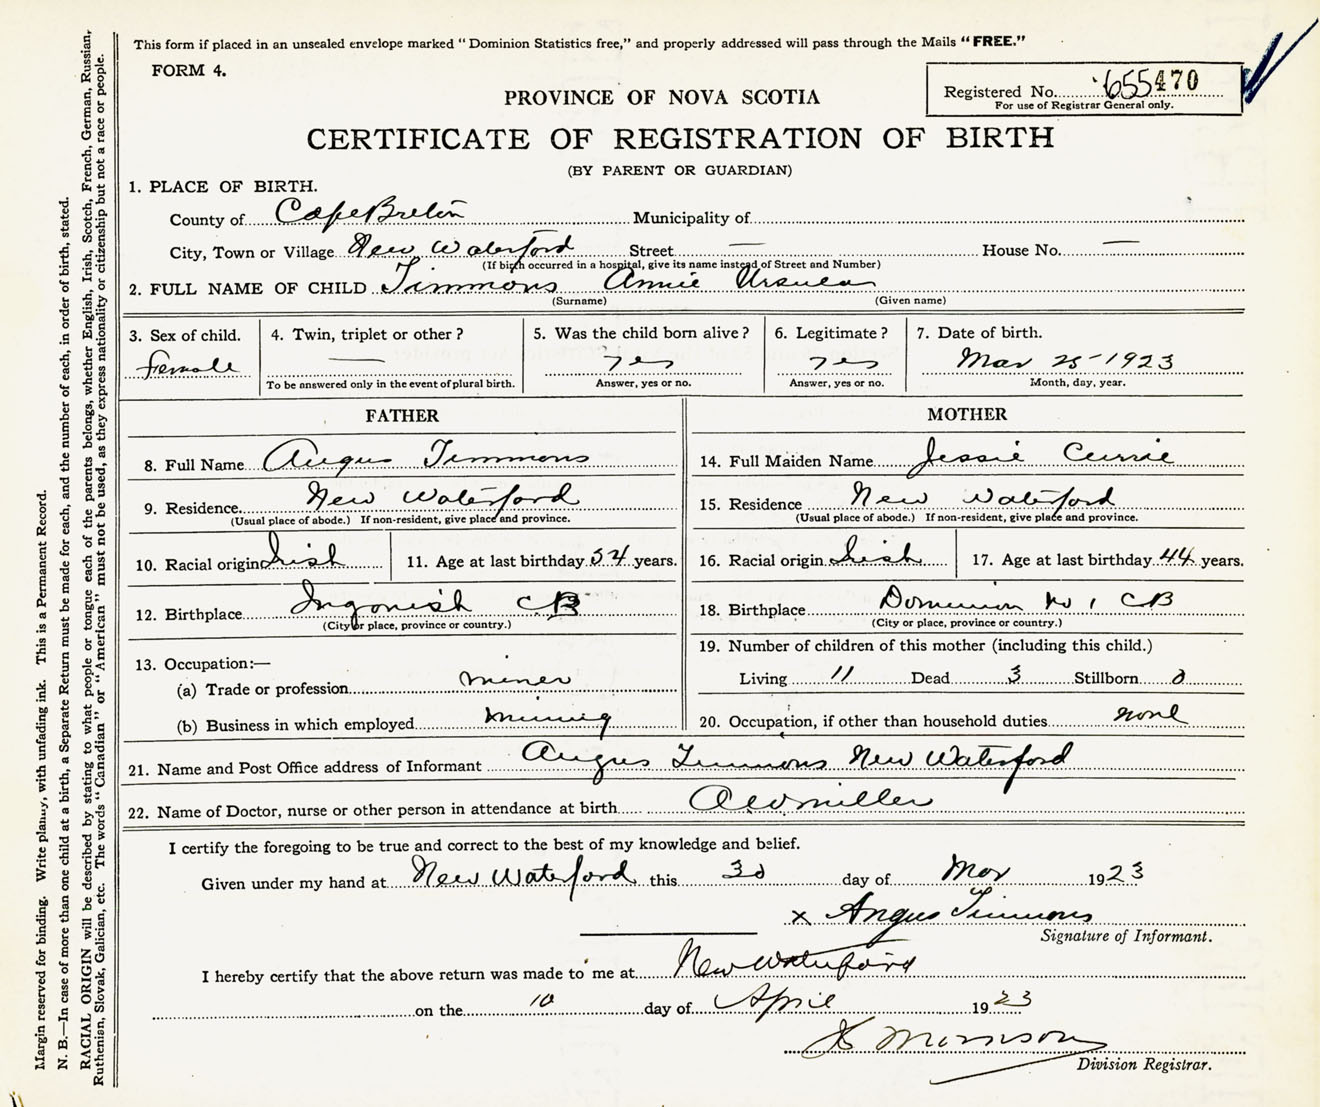 This form if placed in an unsealed envelope marked "Dominion Statistics free," and properly addressed will pass through the Mails "FREE."
FORM 4.
Registered No. 655470
For use of Registrar General only.
PROVINCE OF NOVA SCOTIA
CERTIFICATE OF REGISTRATION OF BIRTH
(BY PARENT OR GUARDIAN)
1. PLACE OF BIRTH.
County of Cape Breton Municipality of
City, Town or Village New Waterford Street — House No. —
(If birth occurred in a hospital, give its name instead of Street and Number)
2. FULL NAME OF CHILD Timmons Annie Ursula
(Surname) (Given name)
3. Sex of child. 4. Twin, triplet or other? 5. Was the child born alive? 6. Legitimate? 7. Date of birth.
Female — yes yes Mar 25-1923
To be answered only in the event of plural birth. Answer, yes or no. Answer, yes or no. Month, day, year.
FATHER MOTHER
8. Full Name Angus Timmons 14. Full Maiden Name Jessie Currie
9. Residence New Waterford 15. Residence New Waterford
(Usual place of abode.) If non-resident, give place and province. (Usual place of abode.) If non-resident, give place and province.
10. Racial origin Irish 11. Age at last birthday 54 years. 16. Racial origin Irish 17. Age at last birthday 44 years.
12. Birthplace Ingonish CB 18. Birthplace Dominion No 1 CB
(City or place, province or country.) (City or place, province or country.)
13. Occupation:— 19. Number of children of this mother (including this child.)
(a) Trade or profession miner Living 11 Dead 3 Stillborn 0
(b) Business in which employed mining 20. Occupation, if other than household duties none
21. Name and Post Office address of Informant Angus Timmons New Waterford
22. Name of Doctor, nurse or other person in attendance at birth miller
I certify the foregoing to be true and correct to the best of my knowledge and belief.
Given under my hand at New Waterford this 30 day of Mar 1923
x Angus Timmons
Signature of Informant.
I hereby certify that the above return was made to me at New Waterford
on the 10 day of April 1923
Morrison
Division Registrar.
Margin reserved for binding. Write plainly, with unfading ink. This is a Permanent Record.
N. B.—In case of more than one child at a birth, a Separate Return must be made for each, and the number of each, in order of birth, stated.
RACIAL ORIGIN will be described by stating to what people or tongue each of the parents belongs, whether English, Irish, Scotch, French, German, Russian,
Ruthenian, Slovak, Galician, etc. The words "Canadian" or "American" must not be used, as they express nationality or citizenship but not a race or people.